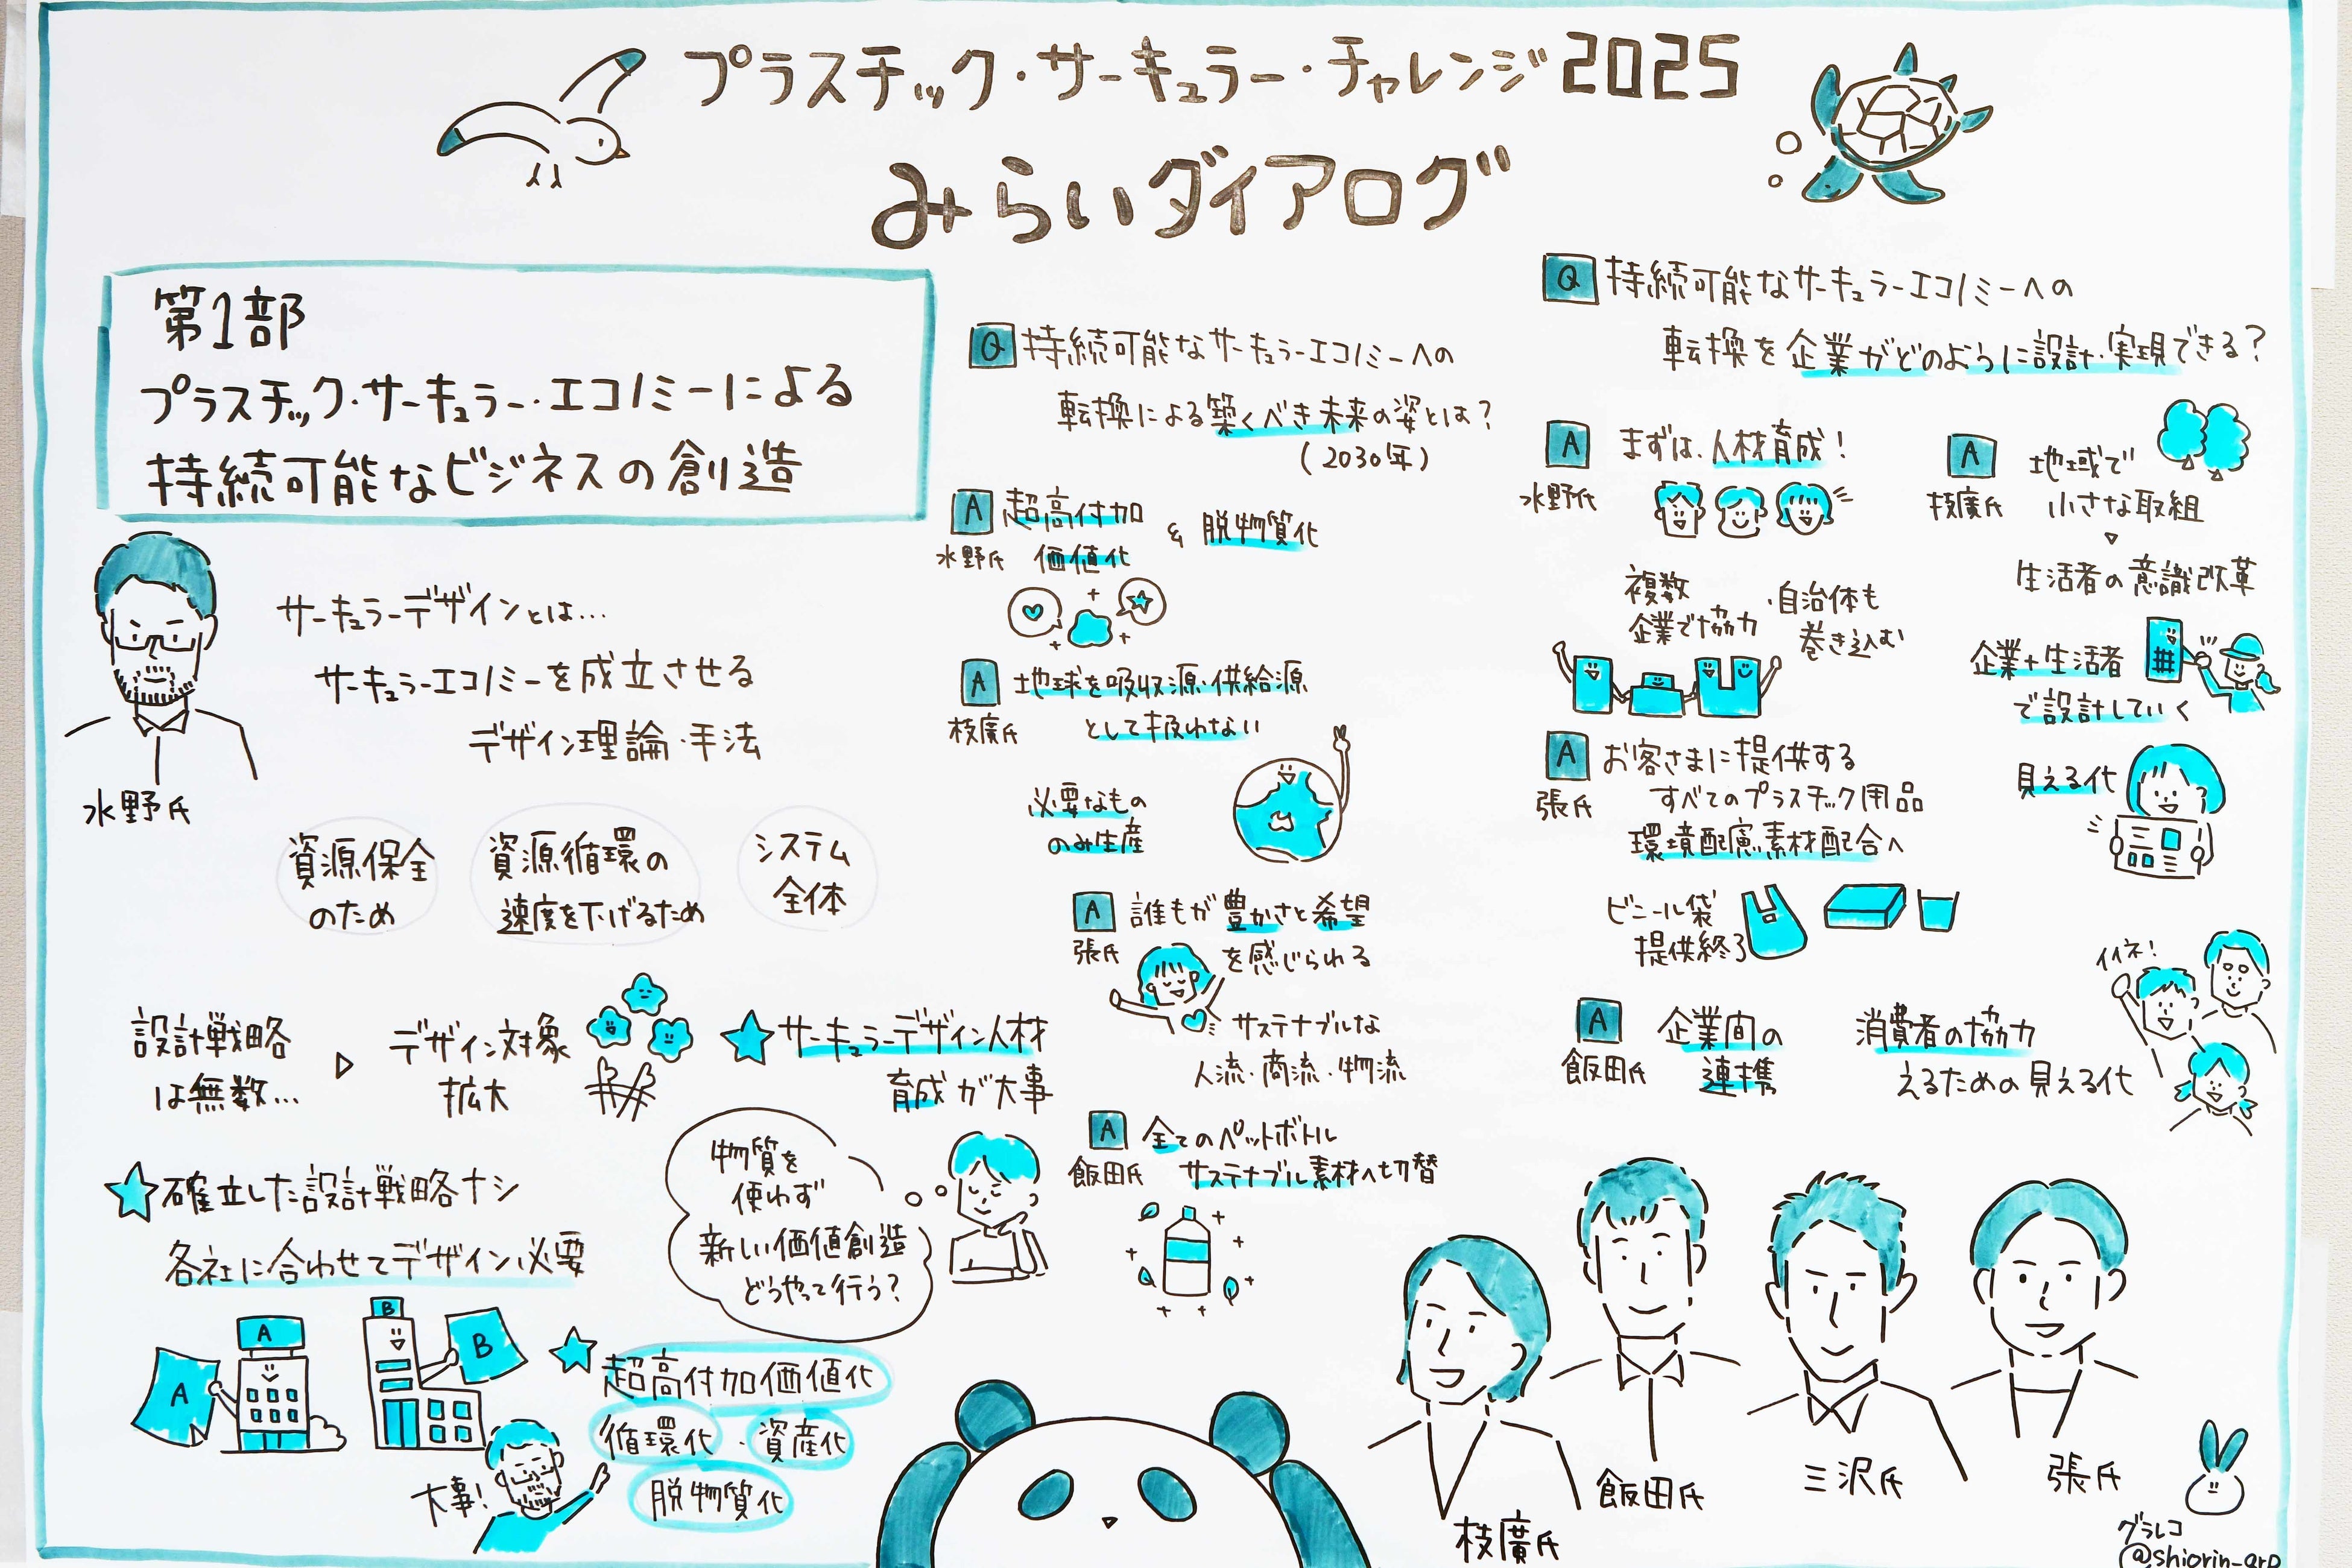 プラスチック・サーキュラー・チャレンジ2025
みらいダイアログ
第1部
プラスチック・サーキュラー・エコノミーによる
持続可能なビジネスの創造
水野氏
サーキュラーデザインとは…
サーキュラーエコノミーを成立させる
デザイン理論・手法
資源保全
のため
資源循環の
速度を下げるため
システム
全体
設計戦略
は無数…
デザイン対象
拡大
サーキュラーデザイン人材
育成が大事
確立した設計戦略ナシ
各社に合わせてデザイン必要
A
A
B
B
物質を
使わず
新しい価値創造
どうやって行う?
大事!
超高付加価値化
循環化・資産化
脱物質化
Q 持続可能なサーキュラーエコノミーへの
転換による築くべき未来の姿とは?
(2030年)
A 超高付加
価値化
& 脱物質化
水野氏
A 地球を吸収源・供給源
として扱わない
枝廣氏
必要なもの
のみ生産
A 誰もが豊かさと希望
を感じられる
張氏
サステナブルな
人流・商流・物流
A 全てのペットボトル
サステナブル素材へ切替
飯田氏
Q 持続可能なサーキュラーエコノミーへの
転換を企業がどのように設計・実現できる?
A まずは、人材育成!
水野氏
複数
企業で協力
・自治体も
巻き込む
A 地域で
小さな取組
枝廣氏
生活者の意識改革
企業+生活者
で設計していく
見える化
A お客さまに提供する
すべてのプラスチック用品
環境配慮素材配合へ
張氏
ビニール袋
提供終了
A 企業間の
連携
飯田氏
消費者の協力
えるための見える化
イイネ!
枝廣氏
飯田氏
三沢氏
張氏
グラレコ
@shiorin_grp